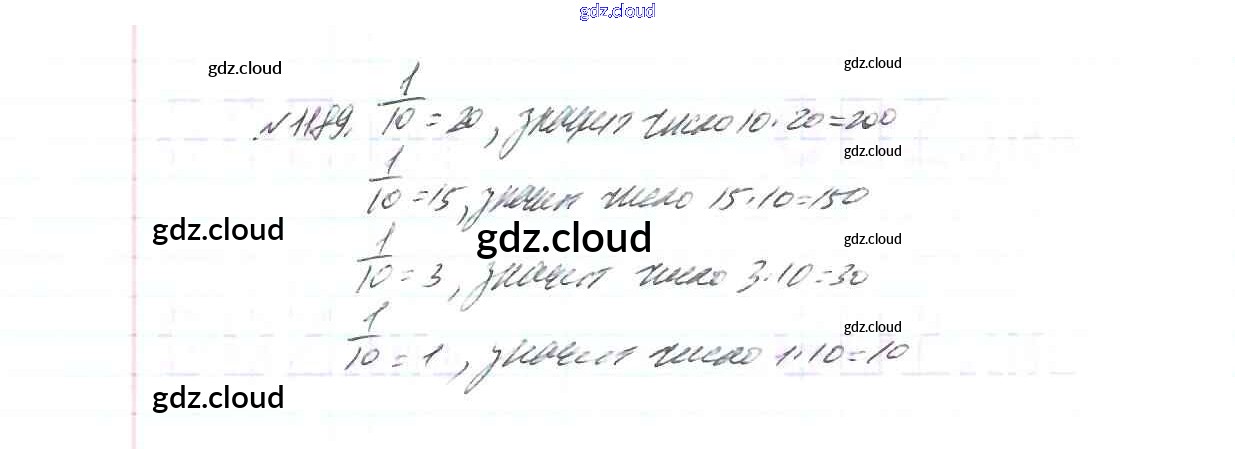 gdz.cloud
gdz.cloud
gdz.cloud
№1189. 1/10 = 20, значит число 10·20=200
gdz.cloud
1/10 = 15, значит число 15·10=150
gdz.cloud
gdz.cloud
gdz.cloud
1/10 = 3, значит число 3·10=30
gdz.cloud
1/10 = 1, значит число 1·10=10
gdz.cloud